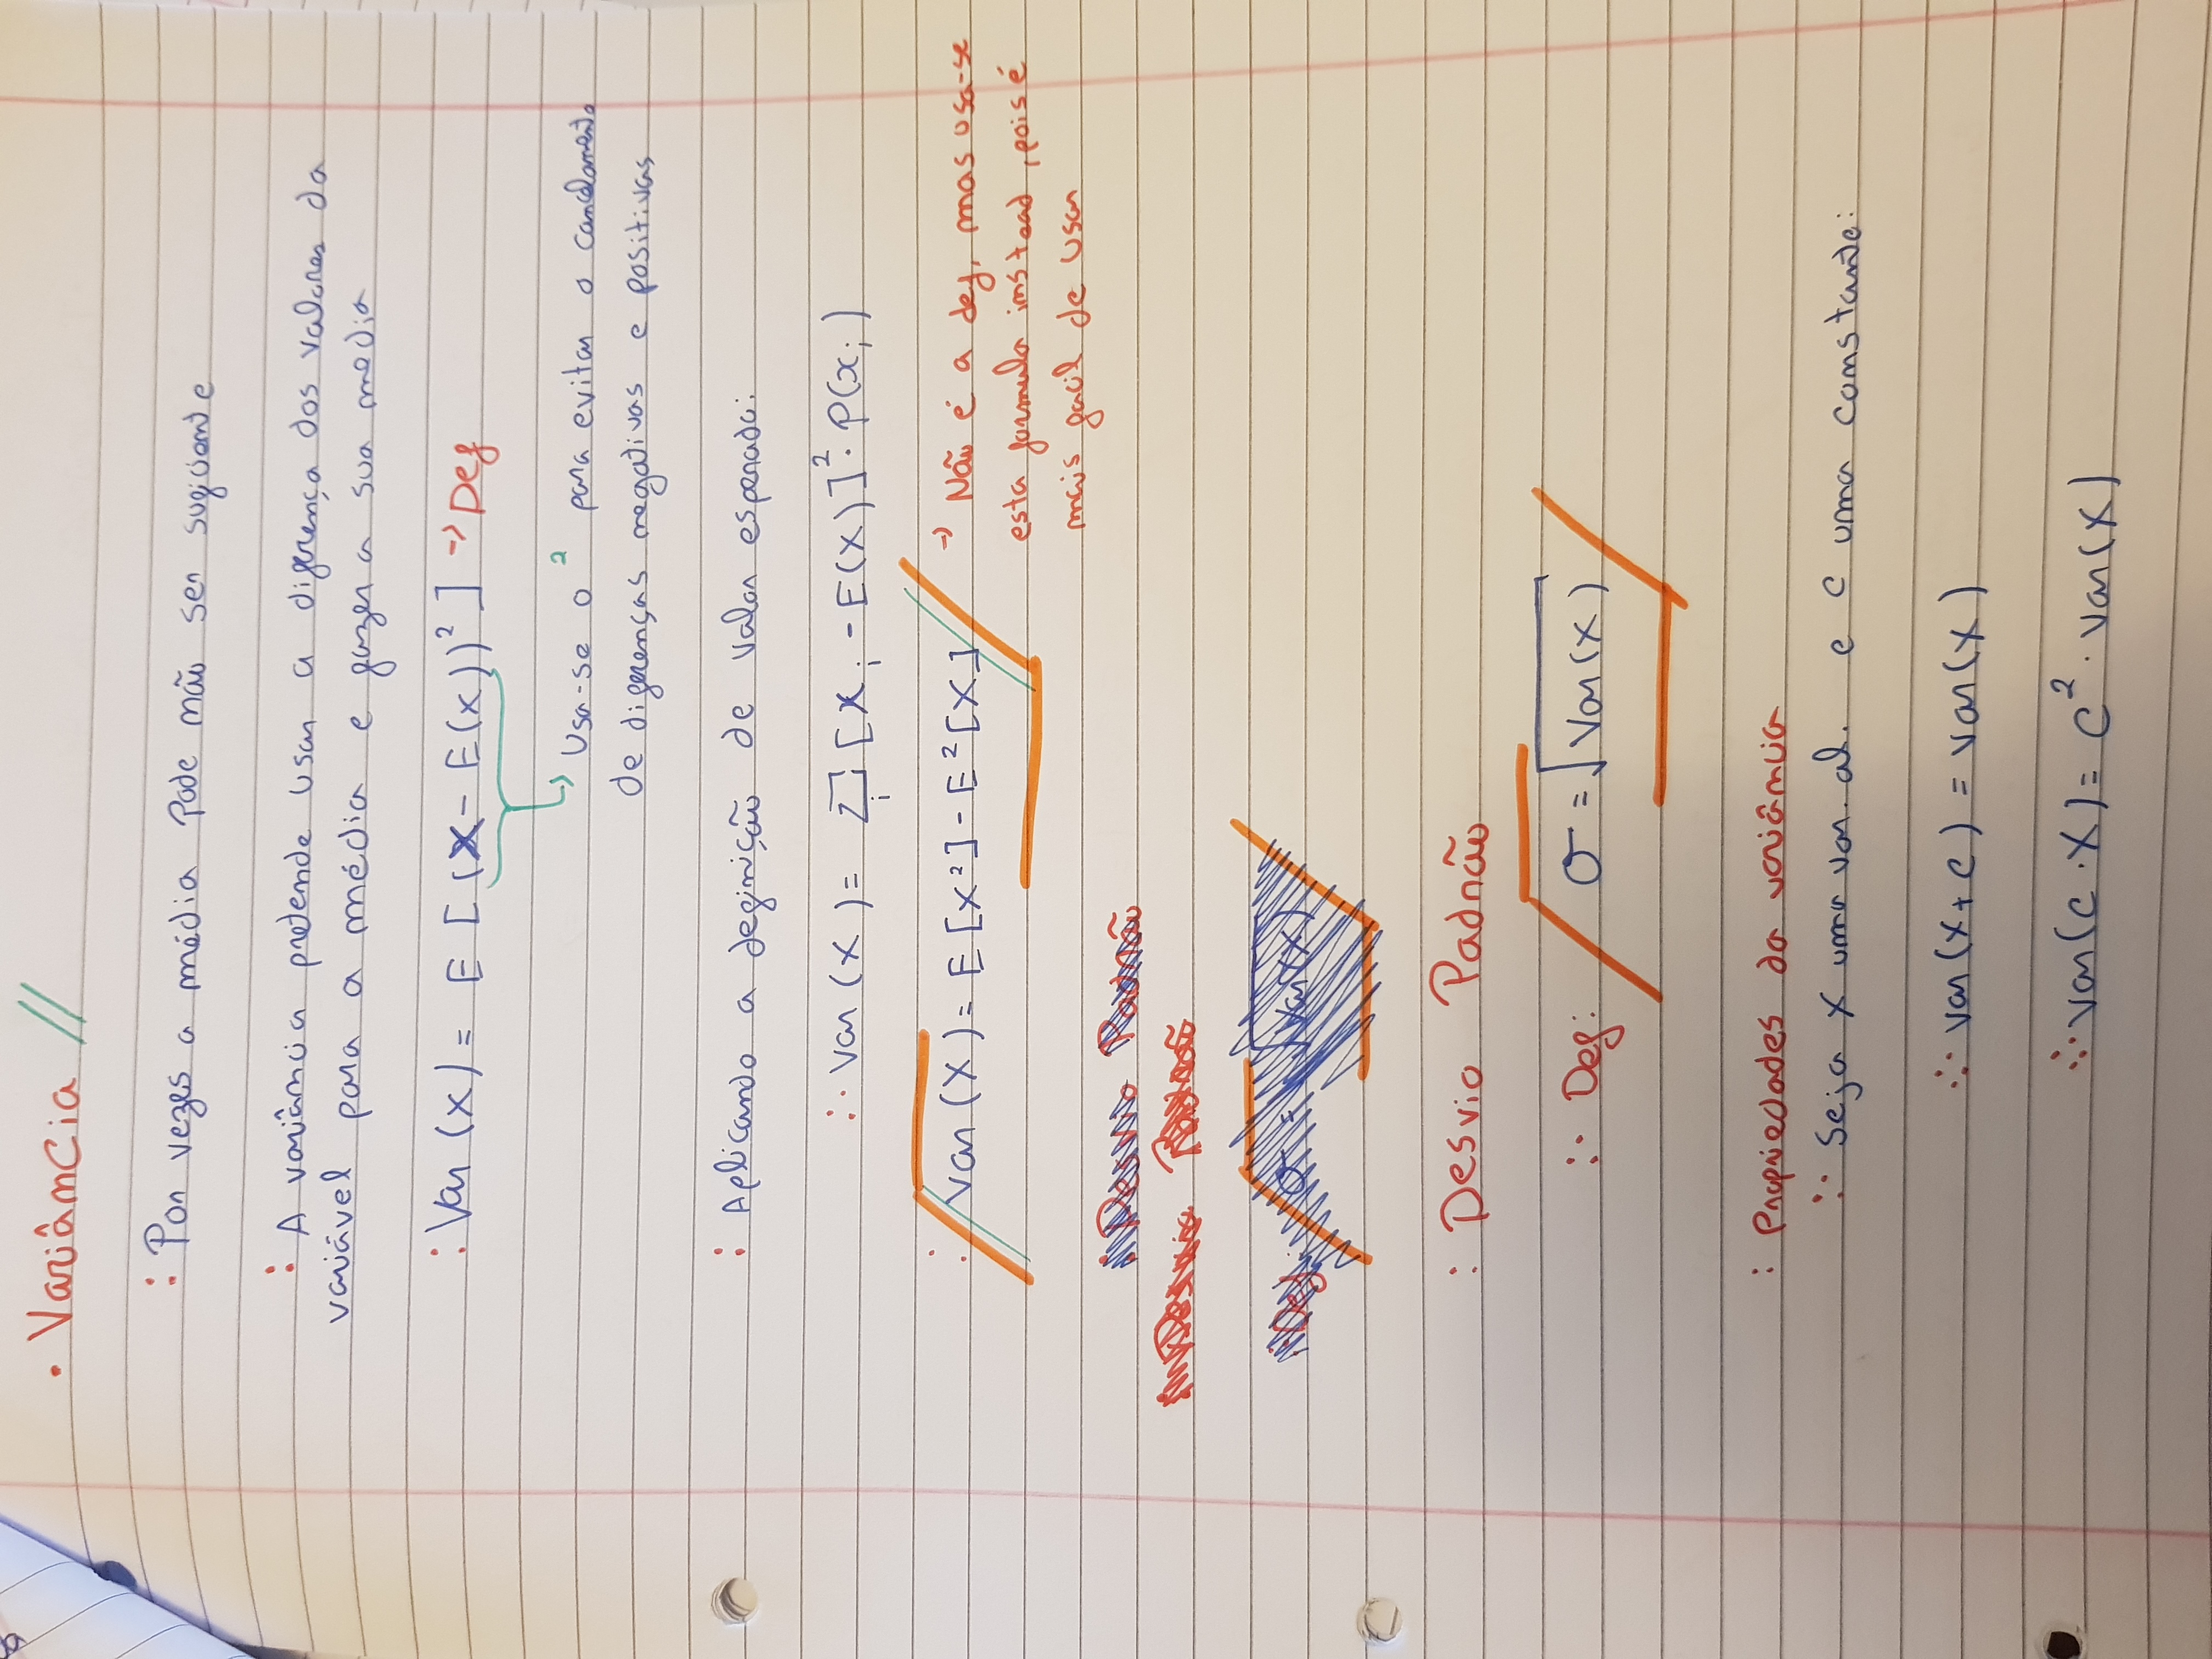 • Variância //
: Por vezes a média Pode não ser suficiente
: A variância pretende usar a diferença dos valores da
variável para a média e fazer a sua media
: Var (X) = E [(X - E(X))²] → Def
↳ Usa-se o ² para evitar o cancelamento
de diferenças negativas e positivas
: Aplicando a definição de valor esperado:
∴ Var (X) = Σi [Xi - E(X)]² · P(xi)
: Var (X) = E[X²] - E²[X] → Não é a def, mas usa-se
esta formula instead, pois é
mais facil de usar
: Desvio Padrão
Desvio Padrão
: Def: σ = √Var(X)
: Desvio Padrão
:· Def: σ = √Var(X)
: Propriedades da variância
:· Seja X uma var. al. e C uma constante:
∴· Var(X + C) = Var(X)
∴· Var(C · X) = C² · Var(X)